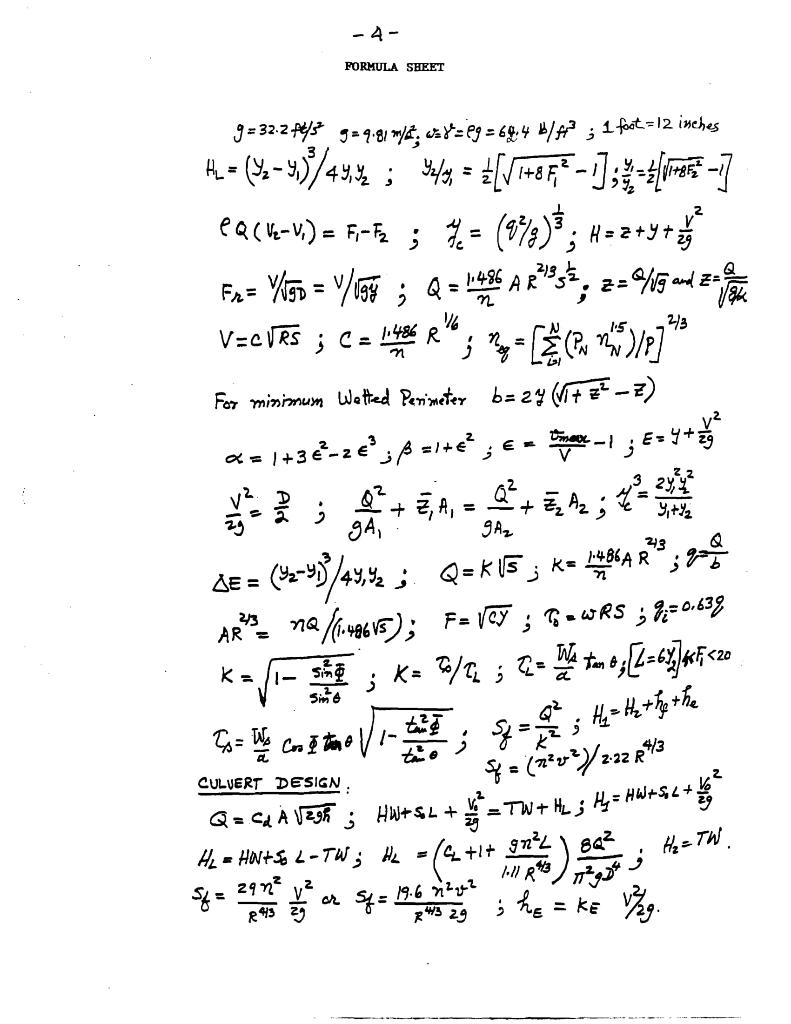 - 4 -
FORMULA SHEET
g = 32.2 ft/s² g = 9.81 m/s²; ω = γ = ρg = 62.4 lb/ft³ ; 1 foot = 12 inches
H_L = (y₂ - y₁)³/4y₁y₂ ; y₂/y₁ = ½[√(1+8F₁²) - 1] ; y₁/y₂ = ½[√(1+8F₂²) - 1]
ρQ(V₂-V₁) = F₁-F₂ ; y_c = (q²/g)^(1/3) ; H = z + y + V²/2g
F_r = V/√(gD) = V/√(gy) ; Q = 1.486/n A R^(2/3) S^(1/2) ; z = Q/√g and Z = Q/√(g/α)
V = C√(RS) ; C = 1.486/n R^(1/6) ; n_eq = [Σ_(i=1)^N (P_N n_N^1.5)/P]^(2/3)
For minimum Wetted Perimeter b = 2y(√(1+z²) - z)
α = 1+3ε²-2ε³ ; β = 1+ε² ; ε = v_max/V - 1 ; E = y + V²/2g
V²/2g = D/2 ; Q²/gA₁ + z̄₁A₁ = Q²/gA₂ + z̄₂A₂ ; y_c³ = 2y₁²y₂²/(y₁+y₂)
ΔE = (y₂-y₁)³/4y₁y₂ ; Q = K√S ; K = 1.486 A R^(2/3)/n ; q = Q/b
AR^(2/3) = nQ/(1.486√S) ; F = √(Cy) ; τ₀ = ωRS ; q_i = 0.63q
K = √(1 - sin²Φ/sin²θ) ; K = τ₀/τ_L ; τ_L = W_s/a tan θ ; [L = 6y₂] 4<F₁<20
τ_s = W_s/a Cos Φ tan θ √(1 - tan²Φ/tan²θ) ; S_f = Q²/K² ; H₁ = H₂ + h_f + h_e
S_f = (n²v²)/2.22 R^(4/3)
CULVERT DESIGN:
Q = C_d A √(2gh) ; HW + S₀L + V₀²/2g = TW + H_L ; H₁ = HW + S₀L + V₀²/2g
H_L = HW + S₀L - TW ; H_L = (C_L + 1 + gn²L/1.11 R^(4/3)) 8Q²/π²gD⁴ ; H₂ = TW.
S_f = 29n²/R^(4/3) V²/2g or S_f = 19.6 n²v²/R^(4/3) 2g ; h_E = K_E V²/2g.